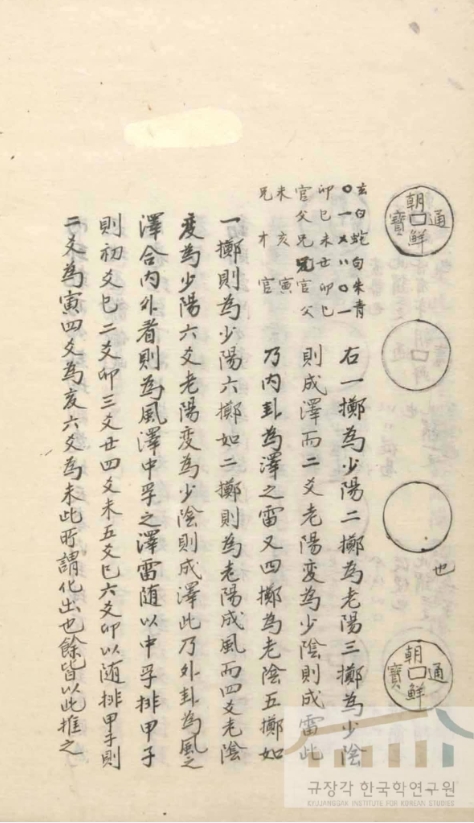 朝鮮通寶
也
朝鮮通寶
玄白蛇句朱青
〇一メ〃〇一
卯巳未丑卯巳
官父兄兄官父
未亥寅
兄才官
右一擲為少陽二擲為老陽三擲為少陰
則成澤而二爻老陽変為少陰則成雷此
乃內卦為澤之雷又四擲為老陰五擲如
一擲則為少陽六擲如二擲則為老陽成風而四爻老陰
変為少陽六爻老陽変為少陰則成澤此乃外卦為風之
澤合內外者則為風澤中孚之澤雷随以中孚排甲子
則初爻巳二爻卯三爻丑四爻未五爻巳六爻卯以随排甲子則
二爻為寅四爻為亥六爻為未此所謂化出也餘皆以此推之
규장각 한국학연구원
KYUJANGGAK INSTITUTE FOR KOREAN STUDIES